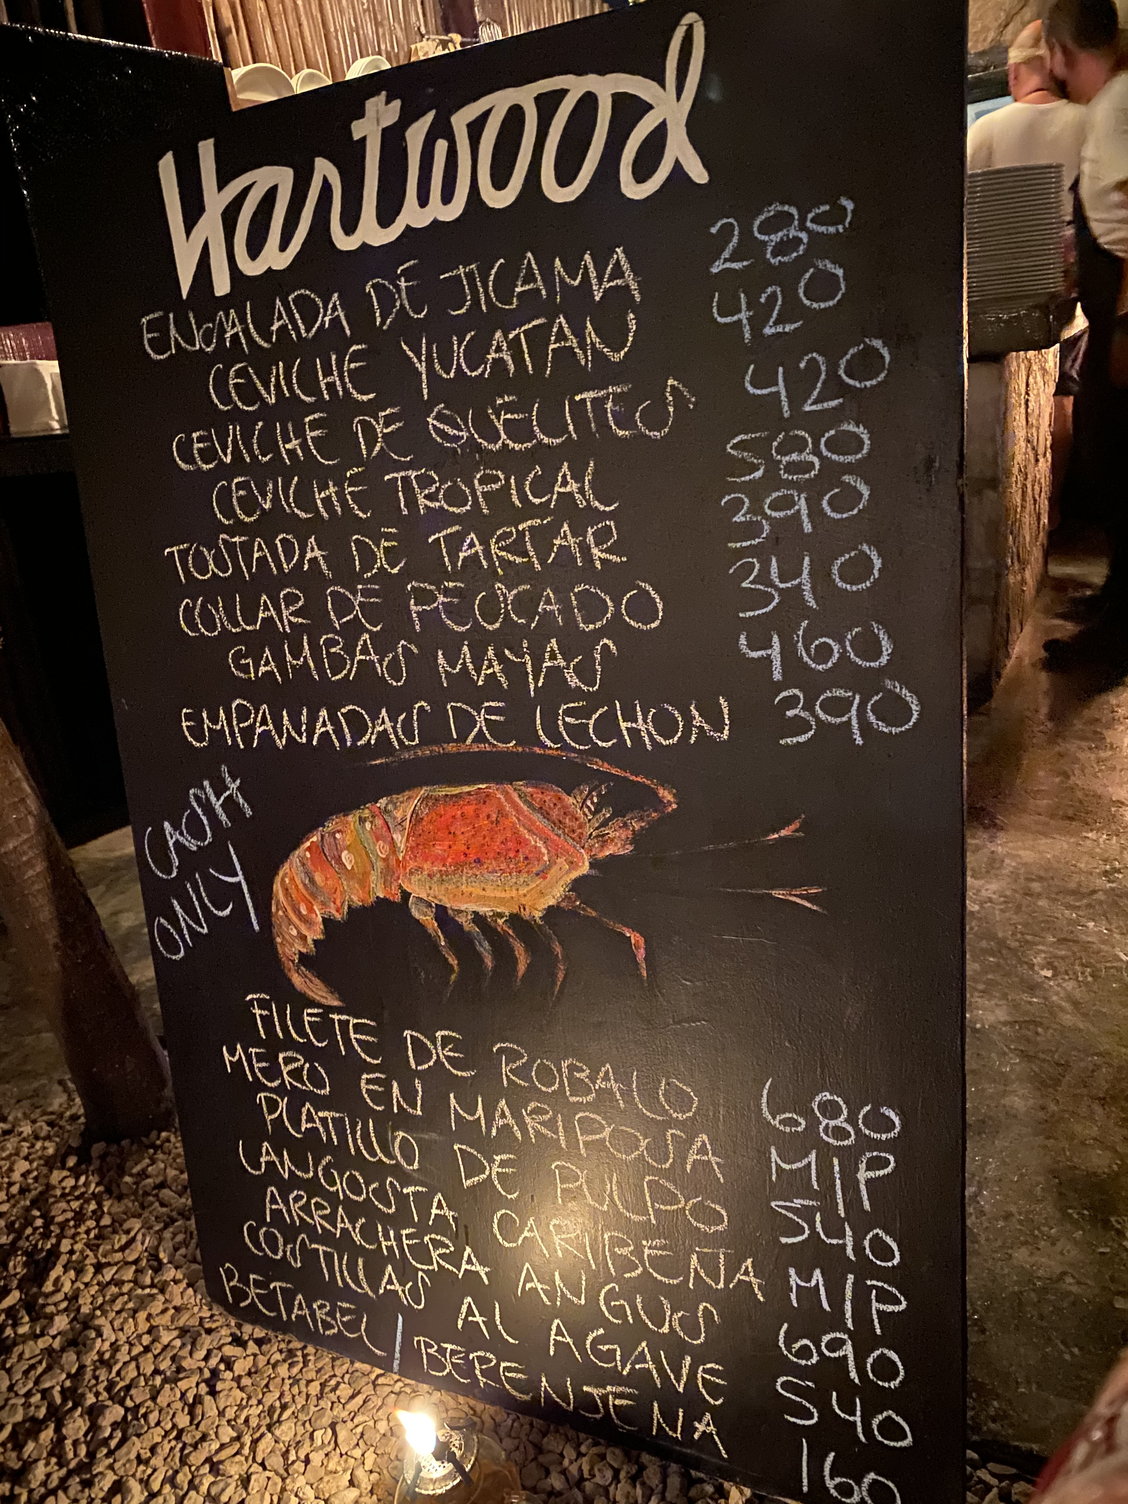 Hartwood
ENSALADA DE JICAMA 280
CEVICHE YUCATAN 420
CEVICHE DE QUELITES 420
CEVICHE TROPICAL 580
TOSTADA DE TARTAR 390
COLLAR DE PESCADO 340
GAMBAS MAYAS 460
EMPANADAS DE LECHON 390
CASH
ONLY
FILETE DE ROBALO 680
MERO EN MARIPOSA M/P
PLATILLO DE PULPO 540
LANGOSTA CARIBEÑA M/P
ARRACHERA ANGUS 690
COSTILLAS AL AGAVE 540
BETABEL/BERENJENA 160